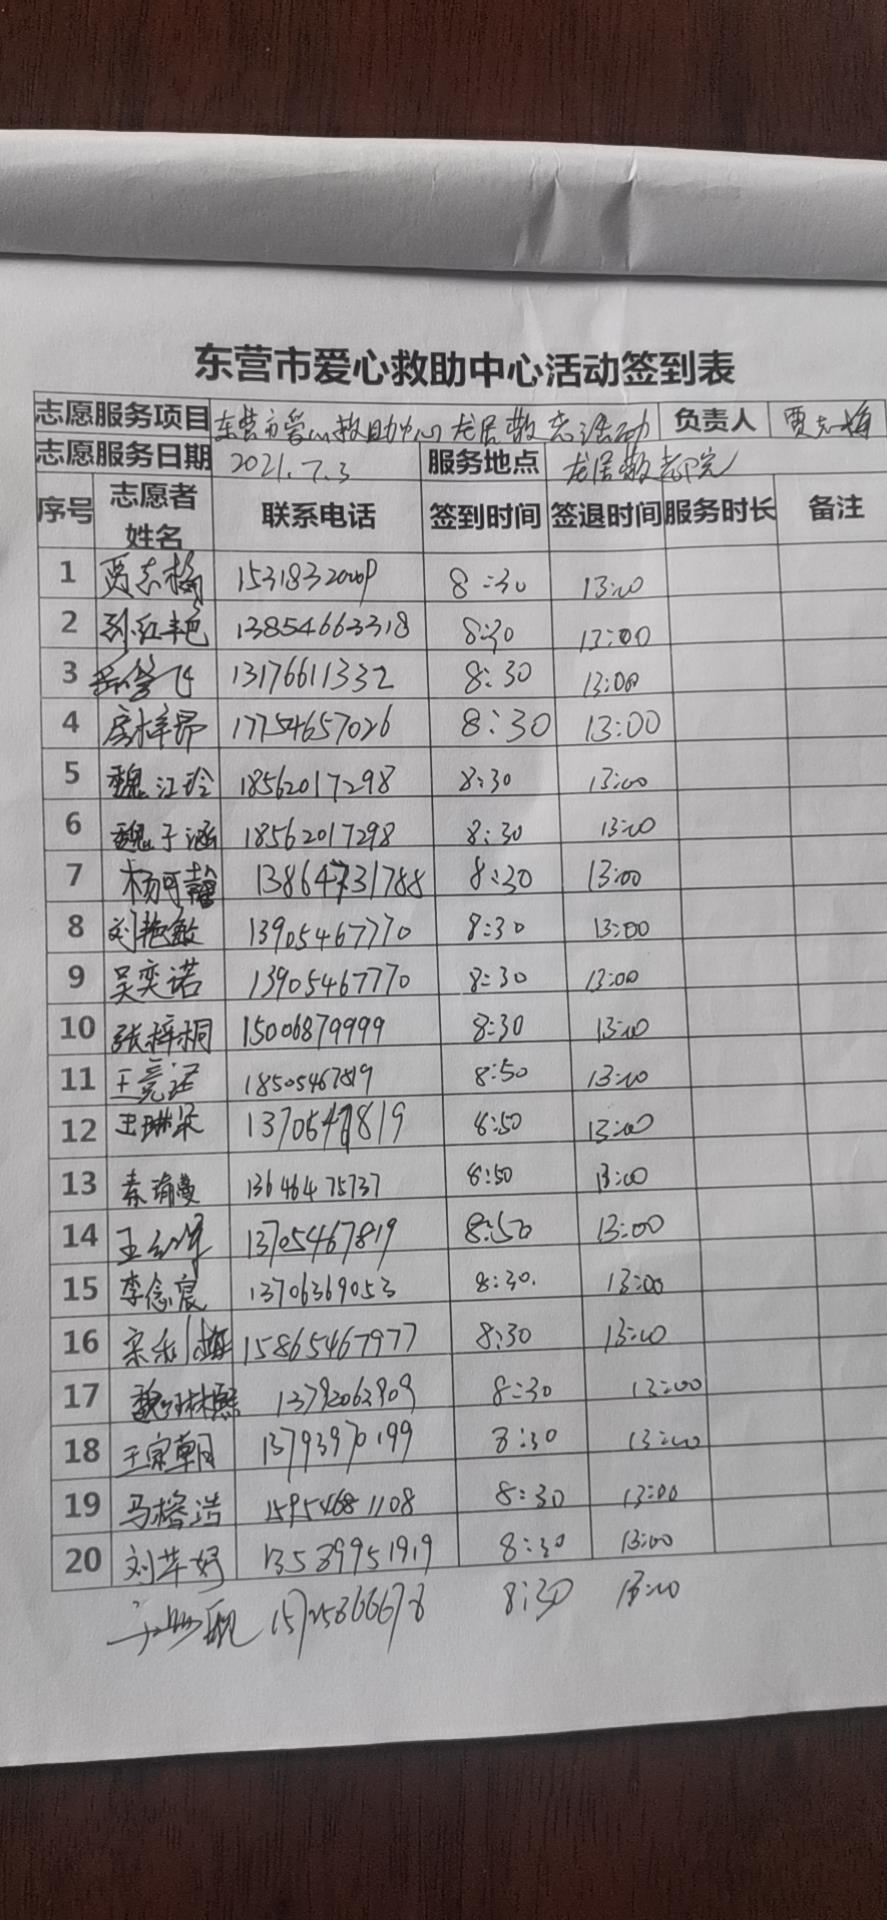 东营市爱心救助中心活动签到表
志愿服务项目 东营市爱心救助中心龙居敬老活动 负责人 贾志梅
志愿服务日期 2021.7.3 服务地点 龙居敬老院
序号 志愿者姓名 联系电话 签到时间 签退时间 服务时长 备注
1 贾志梅 8:30 13:00
2 孙红艳 13854663318 8:30 13:00
3 13176611332 8:30 13:00
4 房梓昂 17754657026 8:30 13:00
5 魏江玲 18562017298 8:30 13:00
6 魏子涵 18562017298 8:30 13:00
7 杨可馨 13864731788 8:30 13:00
8 刘艳敏 13905467770 8:30 13:00
9 吴奕诺 13905467770 8:30 13:00
10 张梓桐 15006879999 8:30 13:00
11 18505467819 8:50 13:00
12 王琳 8:50 13:00
13 秦瑜曼 13646475737 8:50 13:00
14 王 13705467819 8:50 13:00
15 李念宸 13706369053 8:30. 13:00
16 宋 15865467977 8:30 13:00
17 魏 13792062909 8:30 13:00
18 王宗朝 13793970199 8:30 13:00
19 马榕浩 15954681108 8:30 13:00
20 刘芊妤 13589951919 8:30 13:00
8:30 13:00